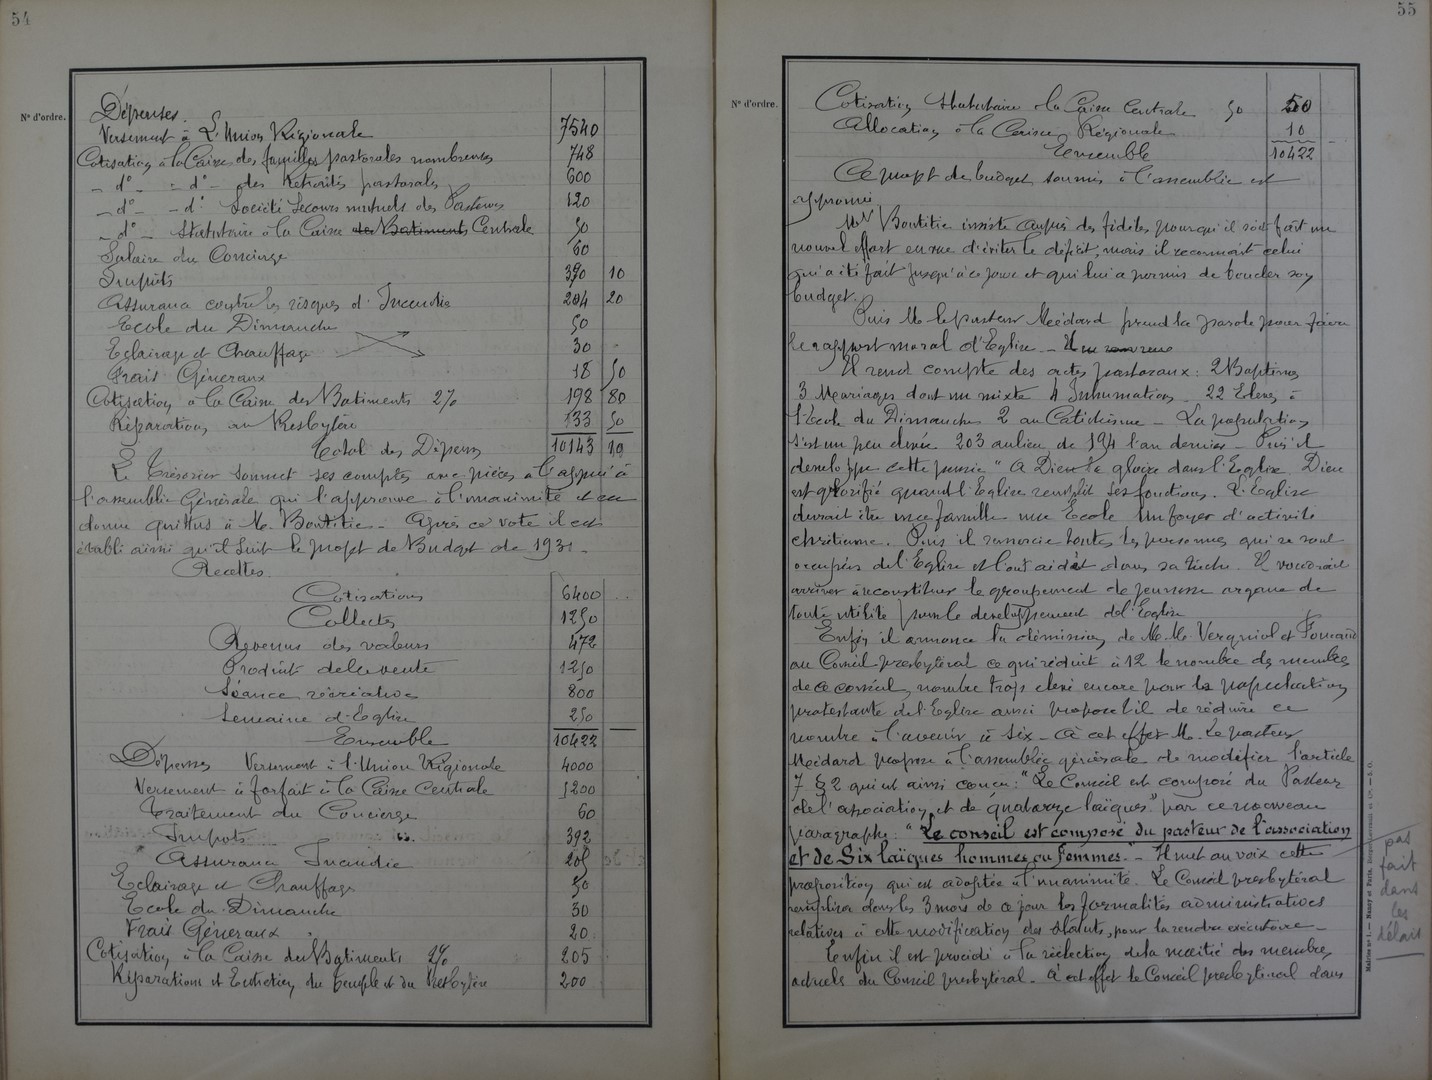 54
N° d'ordre.
Dépenses.
Versement à L'Union Régionale 7540
Cotisation à la Caisse des familles pastorales nombreuses 748
— d° — — d° — des Retraités pastorales 600
— d° — — d° Société Secours mutuels des Pasteurs 120
— d° — Statutaire à la Caisse des Batiments Centrale 50
Salaire du Concierge 60
Impôts 390 10
Assurance contre les risques d'Incendie 204 20
Ecole du Dimanche 50
Eclairage et Chauffage 30
Frais Généraux 18 50
Cotisation à la Caisse des Batiments 2% 198 80
Réparations au Presbytère 133 50
Total des Dépenses 10143 10
Le Trésorier soumet ses comptes avec pièces à l'appui à
l'assemblée Générale qui l'approuve à l'unanimité et en
donne quittus à M. Boutitie — Après ce vote il est
établi ainsi qu'il suit le projet de Budget de 1931 —
Recettes.
Cotisations 6400
Collectes 1250
Revenus des valeurs 472
Produit de la vente 1250
Séance récréative 800
Semaine d'Eglise 250
Ensemble 10422
Dépenses Versement à l'Union Régionale 4000
Versement à forfait à la Caisse Centrale 5200
Traitement du Concierge 60
Impots 392
Assurance Incendie 205
Eclairage et Chauffage 50
Ecole du Dimanche 30
Frais Généraux 20
Cotisation à la Caisse des Batiments 2% 205
Réparations et Entretien du temple et du Presbytère 200
55
N° d'ordre.
Cotisation statutaire à la Caisse Centrale 50 50
Allocation à la Caisse Régionale 10
Ensemble 10422
Ce projet de budget soumis à l'assemblée est
approuvé
Mr Boutitie insiste auprès des fidèles pour qu'il soit fait un
nouvel effort en vue d'éviter le déficit, mais il reconnait celui
qui a été fait jusqu'à ce jour et qui lui a permis de boucler son
budget.
Puis M. le pasteur Médard prend la parole pour faire
le rapport moral d'Eglise —
Il rend compte des actes pastoraux : 2 Baptêmes
3 Mariages dont un mixte 4 Inhumations. 22 Elèves à
l'Ecole du Dimanche 2 au Catéchisme — La population
s'est un peu élevée 203 au lieu de 194 l'an dernier — Puis il
développe cette pensée " A Dieu la gloire dans l'Eglise. Dieu
est glorifié quand l'Eglise remplit ses fonctions. L'Eglise
devrait être une famille une Ecole Un foyer d'activité
chrétienne. Puis il remercie toutes les personnes qui se sont
occupées de l'Eglise et l'ont aidé dans sa tâche. Il voudrait
arriver à reconstituer le groupement de jeunesse organe de
toute utilité pour le développement de l'Eglise
Enfin il annonce la démission de M.M. Vergniol et
au Conseil presbytéral ce qui réduit à 12 le nombre des membres
de ce conseil, nombre trop élevé encore pour la population
protestante de l'Eglise aussi propose t'il de réduire ce
nombre à l'avenir à six — A cet effet M. Le pasteur
Médard propose à l'assemblée générale de modifier l'article
7 § 2 qui est ainsi conçu : " Le Conseil est composé du Pasteur
de l'association et de quatorze laïques " par ce nouveau
paragraphe : " Le conseil est composé du pasteur de l'association
et de Six laïques hommes ou femmes. " — Il met au voix cette
proposition qui est adoptée à l'unanimité. Le Conseil presbytéral
remplira dans les 3 mois de ce jour les formalités administratives
relatives à cette modification des statuts, pour la rendre exécutoire —
Enfin il est procédé à la réélection de la moitié des membres
actuels du Conseil presbytéral — A cet effet le Conseil presbytéral dans
pas
fait
dans
les
délais
Nancy et Paris, Berger-Levrault et Cie